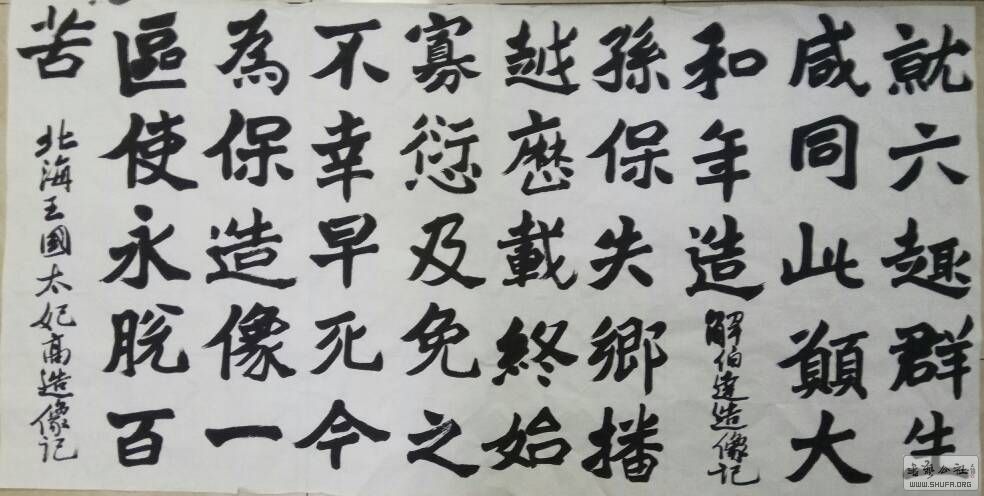 就六趣群生
咸同此願大
和年造
解伯達造像記
孫保失鄉播
越歷載終始
寡愆及免之
不幸早死今
為保造像一
區使永脫百
苦
北海王國太妃高造像记
WWW.SHUFA.ORG